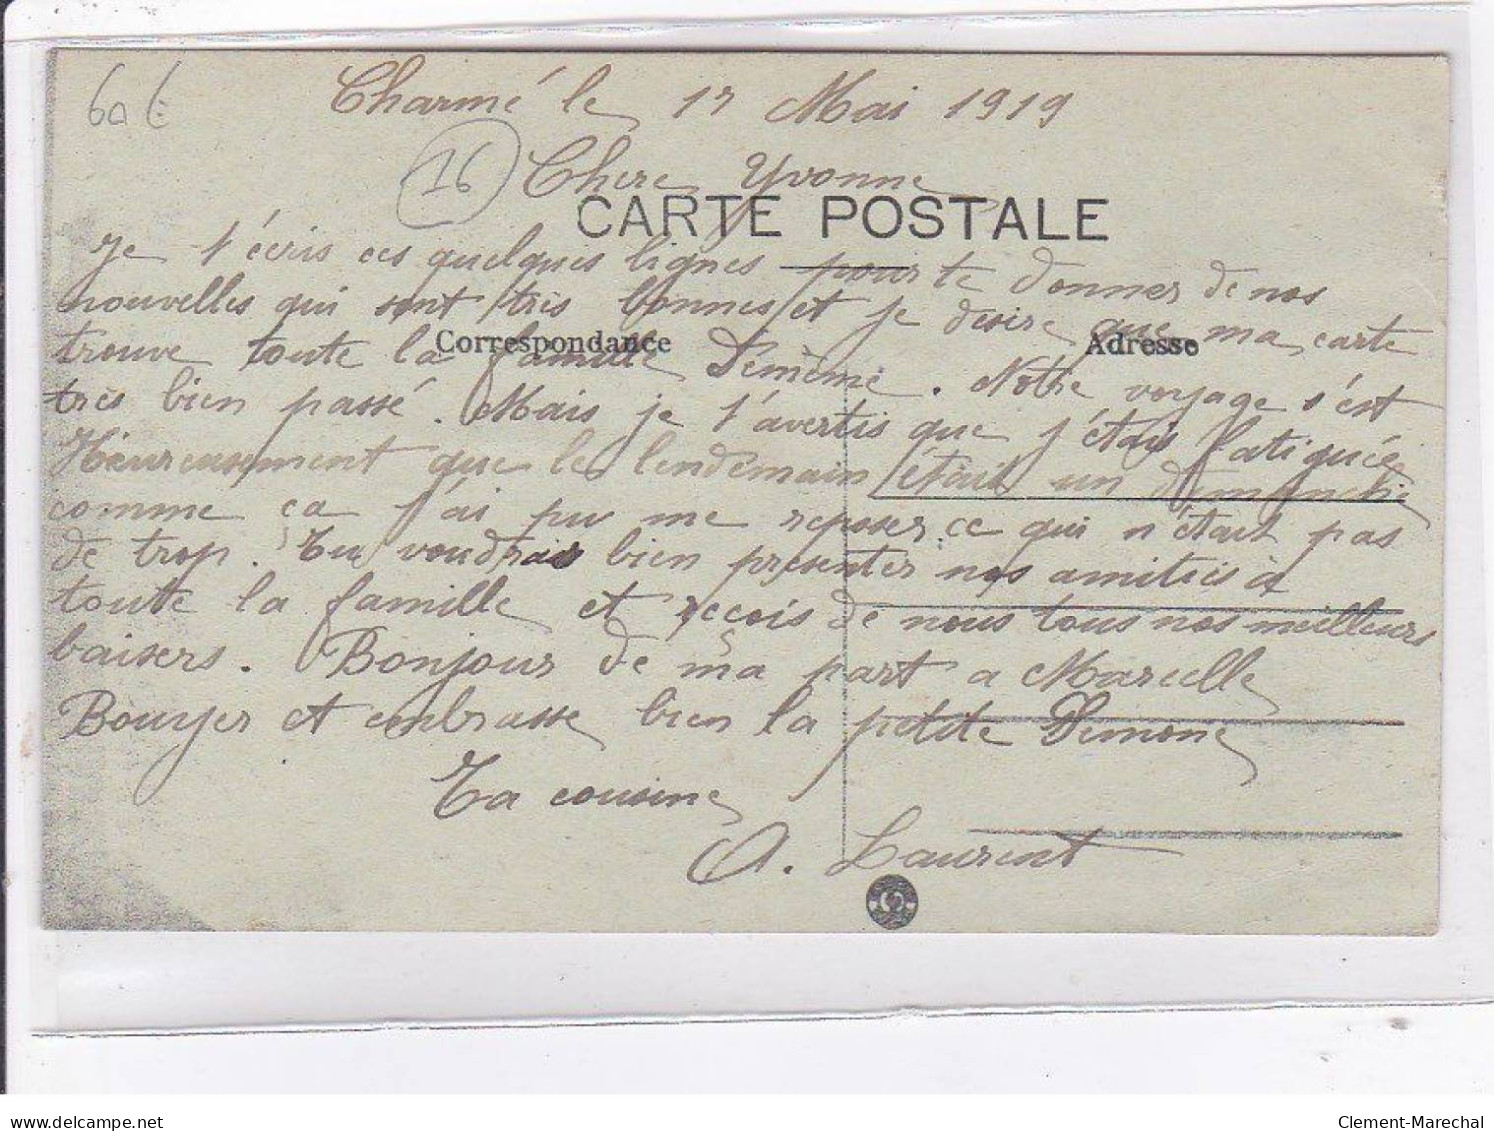 60 €
Charmé le 17 Mai 1919
16
Chere Yvonne
CARTE POSTALE
Je t'écris ces quelques lignes pour te donner de nos
nouvelles qui sont très bonnes et je desire que ma carte
Correspondance
Adresse
trouve toute la famille Demème. Notre voyage s'est
très bien passé. Mais je t'avertis que j'étais fatiguée
Heureusement que le lendemain était un dimanche
comme ça j'ai pu me reposer ce qui n'était pas
de trop. Tu voudrais bien presenter nos amitiés à
toute la famille et reçois de nous tous nos meilleurs
baisers. Bonjour de ma part a Marcelle
Bouyer et embrasse bien la petite Simone
Ta cousine
A. Laurent
Clement-Marechal
delcampe.net